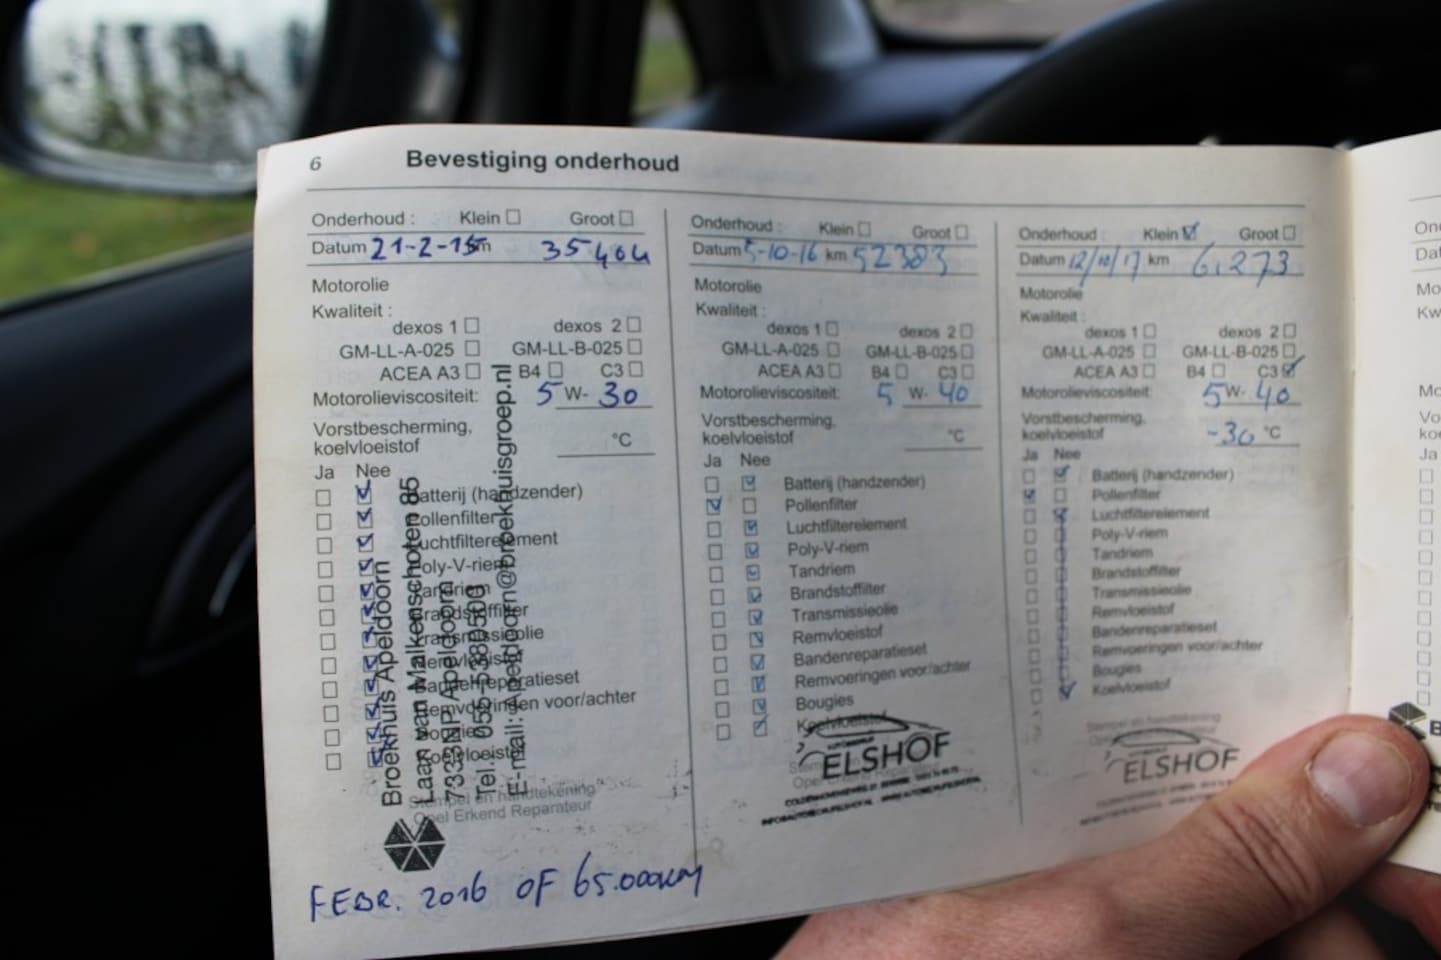 6 Bevestiging onderhoud
Onderhoud : Klein Groot
Datum 21-2-15 km 35404
Motorolie
Kwaliteit :
dexos 1 dexos 2
GM-LL-A-025 GM-LL-B-025
ACEA A3 B4 C3
Motorolieviscositeit: 5 W- 30
Vorstbescherming,
koelvloeistof °C
Ja Nee
Batterij (handzender)
Pollenfilter
Luchtfilterelement
Poly-V-riem
Tandriem
Brandstoffilter
Transmissieolie
Remvloeistof
Bandenreparatieset
Remvoeringen voor/achter
Bougies
Koelvloeistof
Stempel en handtekening
Opel Erkend Reparateur
Broekhuis Apeldoorn
Laan van Malkenschoten 85
7333NP Apeldoorn
E-mail: Apeldoorn@broekhuisgroep.nl
FEBR. 2016 OF 65.000KM
Onderhoud : Klein Groot
Datum 5-10-16 km 52383
Motorolie
Kwaliteit :
dexos 1 dexos 2
GM-LL-A-025 GM-LL-B-025
ACEA A3 B4 C3
Motorolieviscositeit: 5 W- 40
Vorstbescherming,
koelvloeistof °C
Ja Nee
Batterij (handzender)
Pollenfilter
Luchtfilterelement
Poly-V-riem
Tandriem
Brandstoffilter
Transmissieolie
Remvloeistof
Bandenreparatieset
Remvoeringen voor/achter
Bougies
Koelvloeistof
ELSHOF
Onderhoud : Klein Groot
Datum 12/10/17 km 6,273
Motorolie
Kwaliteit :
dexos 1 dexos 2
GM-LL-A-025 GM-LL-B-025
ACEA A3 B4 C3
Motorolieviscositeit: 5 W- 40
Vorstbescherming,
koelvloeistof -30 °C
Ja Nee
Batterij (handzender)
Pollenfilter
Luchtfilterelement
Poly-V-riem
Tandriem
Brandstoffilter
Transmissieolie
Remvloeistof
Bandenreparatieset
Remvoeringen voor/achter
Bougies
Koelvloeistof
Stempel en handtekening
ELSHOF